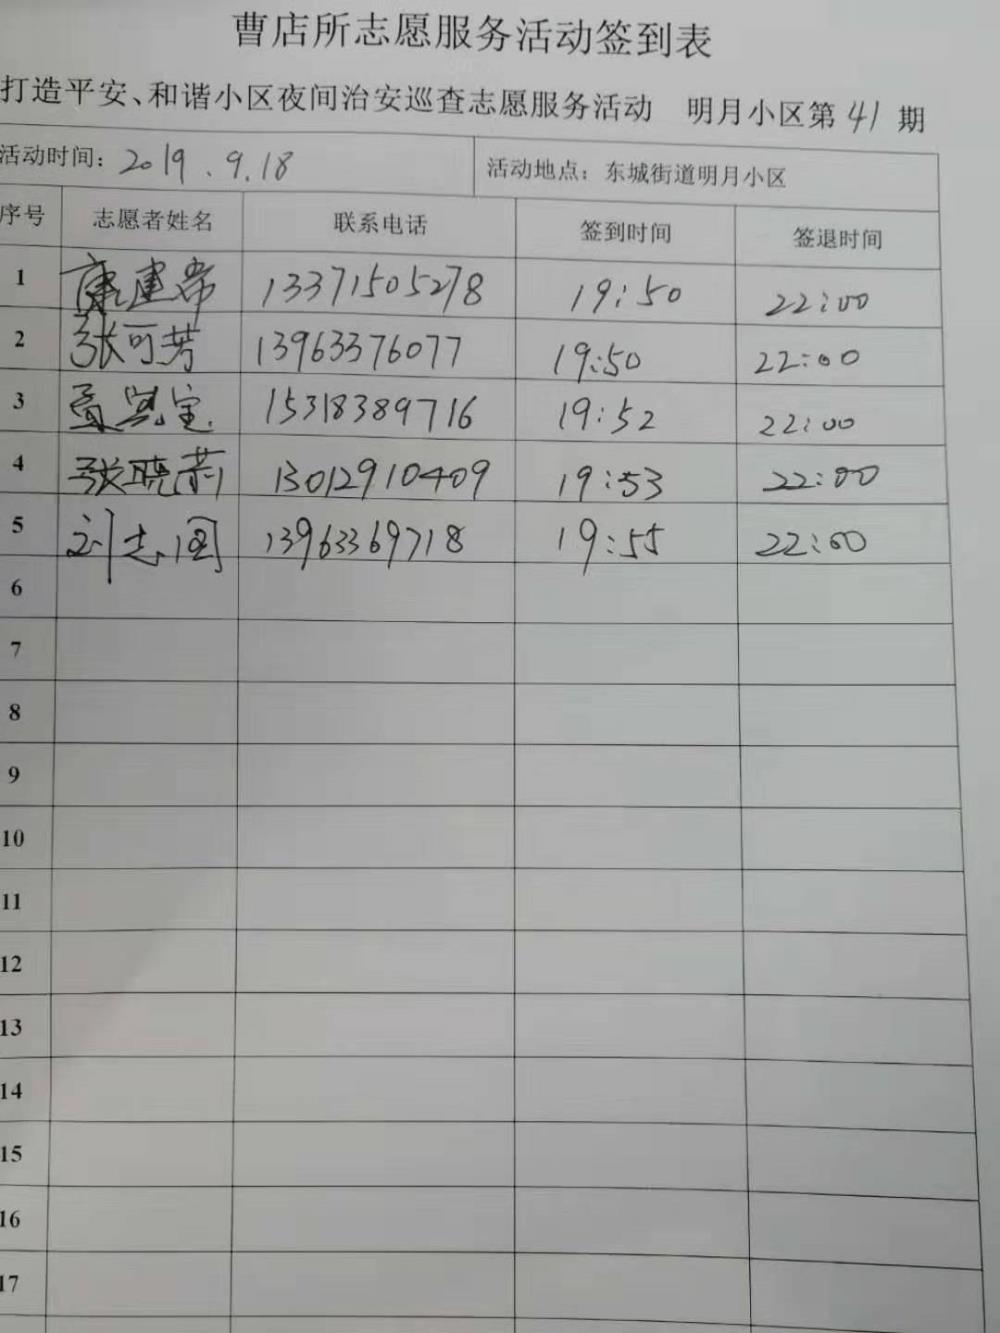 曹店所志愿服务活动签到表
打造平安、和谐小区夜间治安巡查志愿服务活动 明月小区第41期
活动时间：2019.9.18 活动地点：东城街道明月小区
序号 志愿者姓名 联系电话 签到时间 签退时间
1 康建常 13371505278 19:50 22:00
2 张可芳 13963376077 19:50 22:00
3 15318389716 19:52 22:00
4 张晓莉 13012910409 19:53 22:00
5 刘志国 13963369718 19:55 22:00
6
7
8
9
10
11
12
13
14
15
16
17